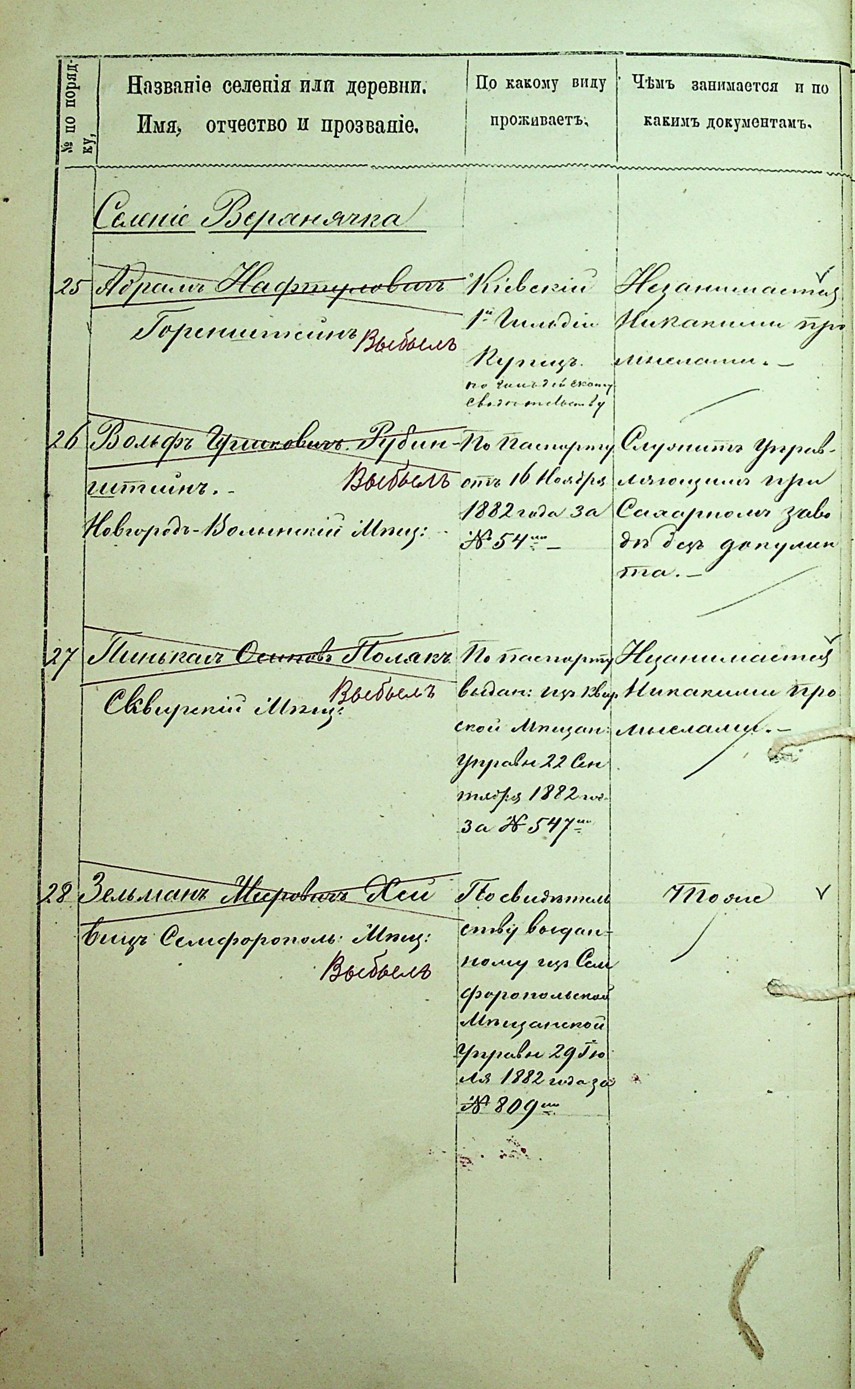 № по поряд-
ку,
Названіе селенія или деревни.
Имя, отчество и прозваніе.
По какому виду
проживаетъ.
Чѣмъ занимается и по
какимъ документамъ.
Селеніе Веранячка
25
Абрамъ Нафтуловичъ
Горенштейнъ
Выбылъ
Кіевскій
1й Гильдіи
Купецъ.
по Гильдейскому
свидетельству
Незанимается
Никакими про
мыслами. –
26
Вольфъ Рубин-
штейнъ. –
Выбылъ
Новгородъ-Волынскій Мѣщ:
По Паспорту
отъ 16 Ноября
1882 года за
№ 54мъ –
Служитъ Управ-
ляющимъ при
Сахарномъ заво
дѣ безъ докумен
та. –
27
Пинькасъ Осиповъ Полякъ
Выбылъ
Сквирскій Мѣщ:
По паспорту
выдан: изъ Сквир
ской Мѣщан:
Управы 22 Сен
тября 1882 год.
за № 547мъ
Незанимается
Никакими про
мыслами. –
28
Зельманъ Меровичъ Хей
вицъ Семфорополь: Мѣщ:
Выбылъ
По свидѣтель
ству выдан-
ному изъ Сем
форопольской
Мѣщанской
Управы 29 Ію
ля 1882 года за
№ 809мъ
Тоже